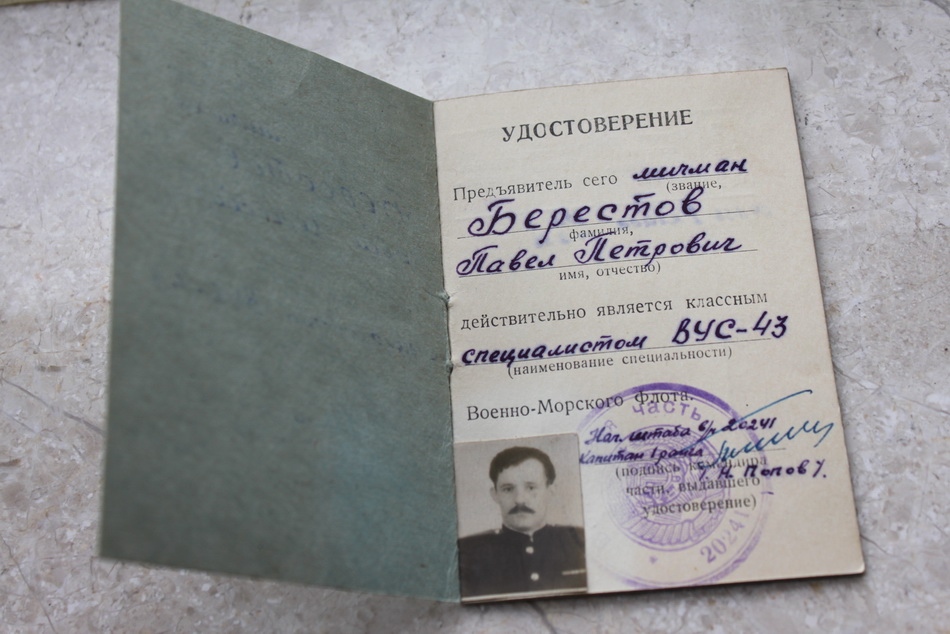 УДОСТОВЕРЕНИЕ
Предъявитель сего мичман
(звание,
Берестов
фамилия,
Павел Петрович
имя, отчество)
действительно является классным
специалистом ВУС-43
(наименование специальности)
Военно-Морского флота.
часть
Нач. штаба в/ч 20241
Капитан 1 ранга
(подпись командира
Попов
части, выдавшего
удостоверение)
20241